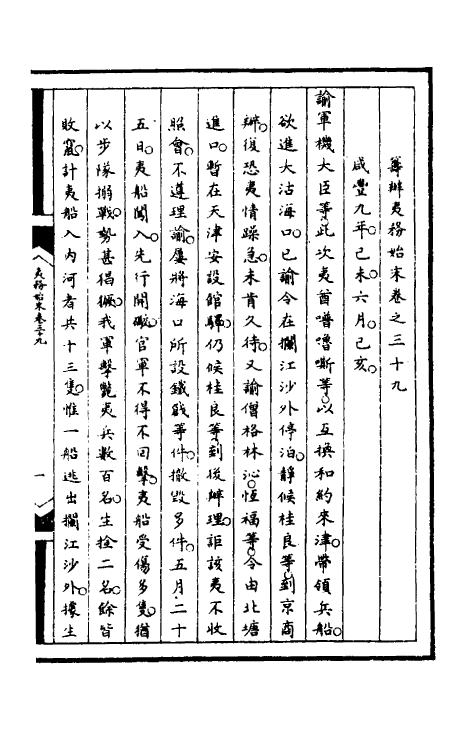 籌辦夷務始末卷之三十九
咸豐九年己未六月己亥。
諭軍機大臣等。此次夷酋嚕嚕嘶等。以互換和約來津。帶領兵船。
欲進大沽海口。已諭令在攔江沙外停泊。靜候桂良等到京商
辦。後恐夷情躁急。未肯久待。又諭僧格林沁。恆福等。令由北塘
進口。暫在天津安設館驛。仍候桂良等到後辦理。詎該夷不收
照會。不遵理諭。屢將海口所設鐵戧等件。撤毀多件。五月二十
五日。夷船闖入。先行開礮。官軍不得不回擊。夷船受傷多隻。猶
以步隊搦戰。勢甚猖獗。我軍擊斃夷兵數百名。生擒二名。餘皆
敗竄。計夷船入內河者共十三隻。惟一船逃出攔江沙外。據生
夷務始末卷三十九
一